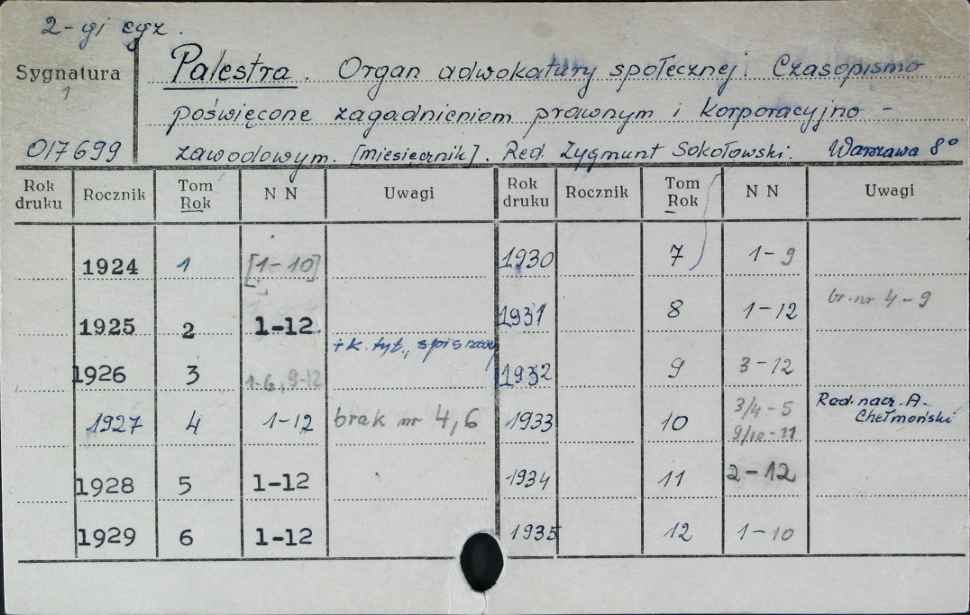 2-gi egz.
Sygnatura
1
Palestra. Organ adwokatury społecznej. Czasopismo
poświęcone zagadnieniom prawnym i korporacyjno -
017699 zawodowym. [miesięcznik]. Red. Zygmunt Sokołowski. Warszawa 8°
Rok druku Rocznik Tom Rok N N Uwagi Rok druku Rocznik Tom Rok N N Uwagi
1924 1 [1-10] 1930 7 1-9
1925 2 1-12 1931 8 1-12 br. nr 4-9
+ k. tyt., spis rzeczy
1926 3 1-6, 9-12 1932 9 3-12
1927 4 1-12 brak nr 4,6 1933 10 3/4-5 9/10-11 Red. nacz. A. Chełmoński
1928 5 1-12 1934 11 2-12
1929 6 1-12 1935 12 1-10